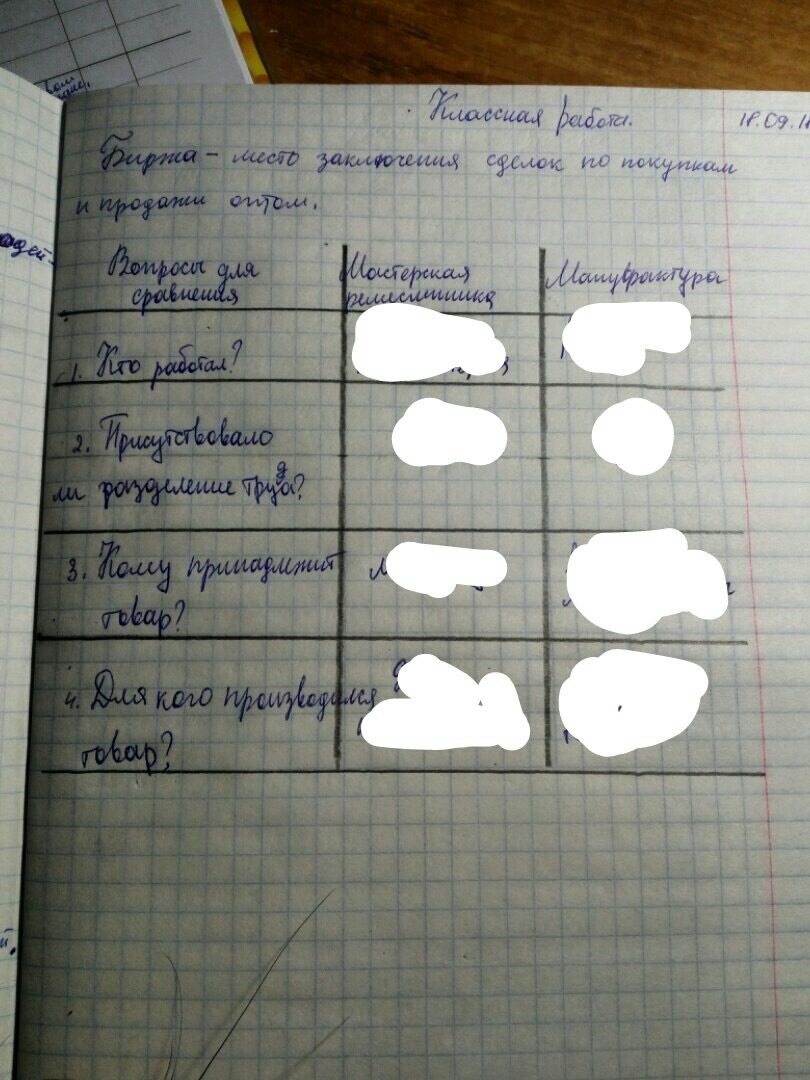 Классная работа.
18.09.1
Биржа - место заключения сделок по покупкам
и продажи оптом.
Вопросы для
сравнения
Мастерская
ремесленника
Мануфрактура
1. Кто работал?
2. Присутствовало
ли разделение труда?
3. Кому принадлежит
товар?
4. Для кого производился
товар?